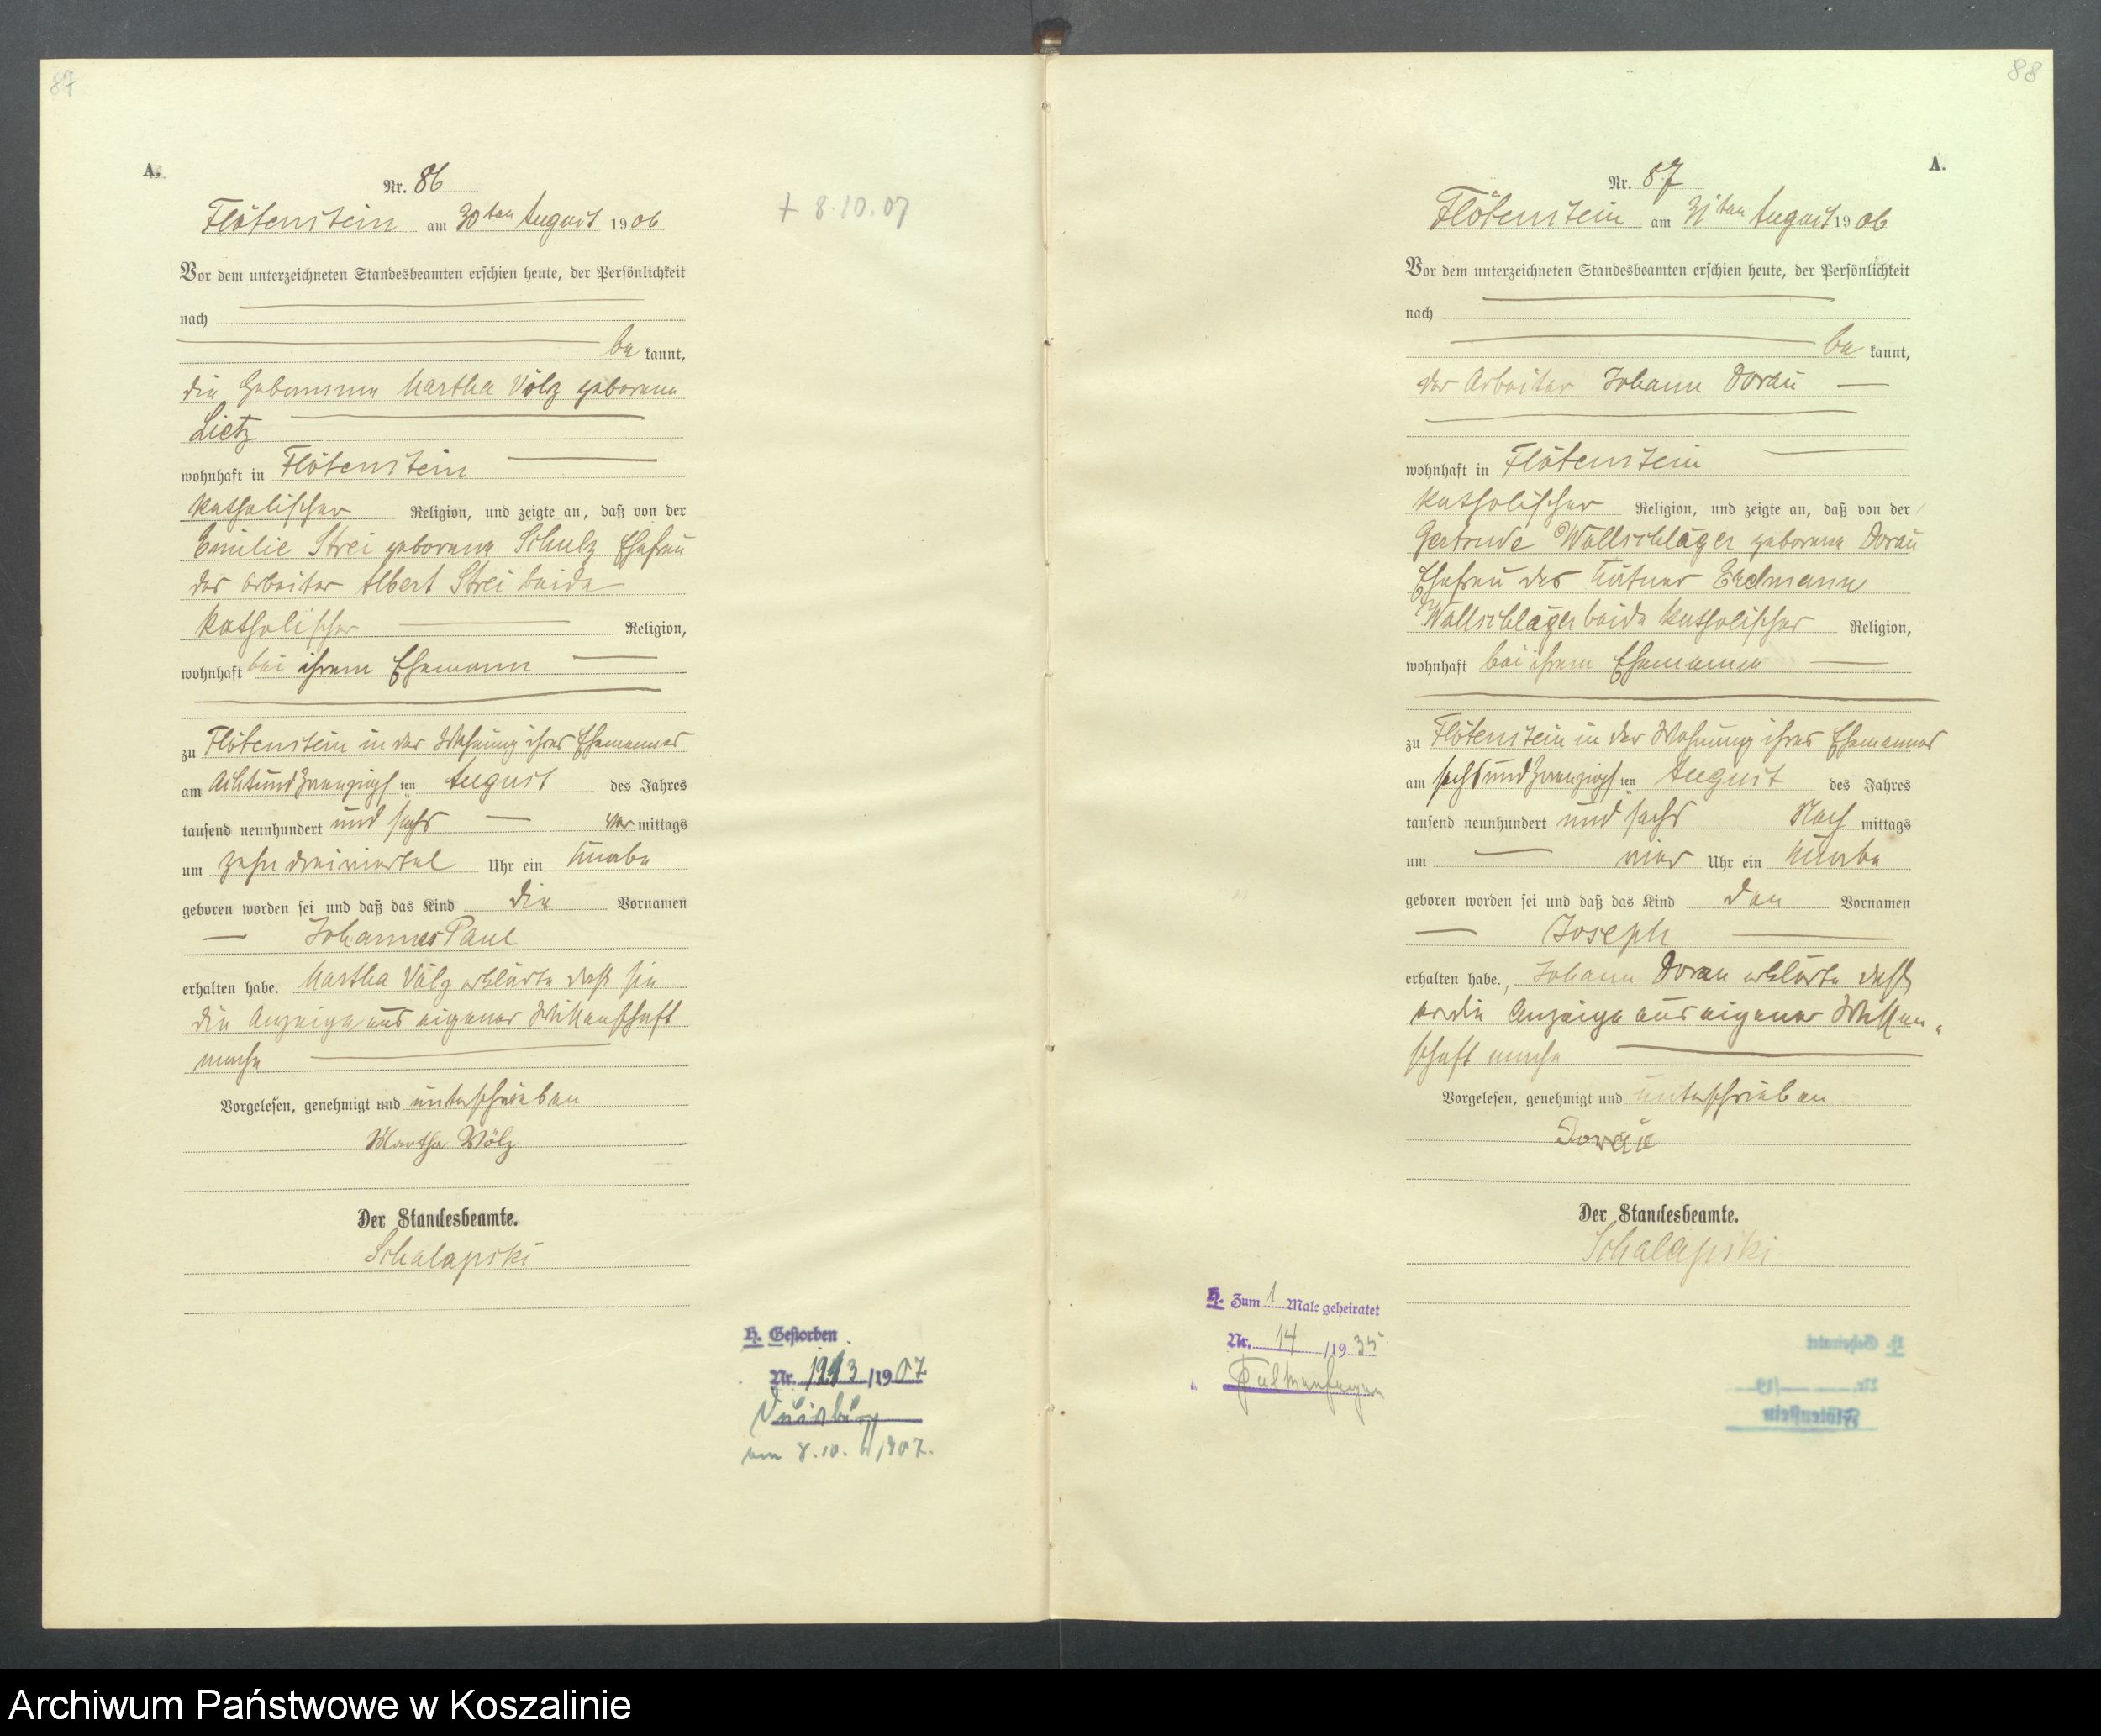 87
A.
Nr. 86
Flötenstein am 30ten August 1906
Vor dem unterzeichneten Standesbeamten erschien heute, der Persönlichkeit
nach
be kannt,
die Hebamme Martha Völz geborene
Lietz
wohnhaft in Flötenstein
katholischer Religion, und zeigte an, daß von der
Emilie Strei geborene Schulz Ehefrau
des Arbeiter Albert Strei beide
katholischer Religion,
wohnhaft bei ihrem Ehemann
zu Flötenstein in der Wohnung ihres Ehemannes
am Achtundzwanzigsten August des Jahres
tausend neunhundert und sechs vor mittags
um zehn dreiviertel Uhr ein Knabe
geboren worden sei und daß das Kind die Vornamen
Johannes Paul
erhalten habe. Martha Völz erklärte daß sie
die Anzeige aus eigener Wissenschaft
mache
Vorgelesen, genehmigt und unterschrieben
Martha Völz
Der Standesbeamte.
Schalapski
† 8.10.07
H. Gestorben
Nr. /1907
Duisburg
am 8.10.1907.
88
A.
Nr. 87
Flötenstein am 31ten August 1906
Vor dem unterzeichneten Standesbeamten erschien heute, der Persönlichkeit
nach
be kannt,
der Arbeiter Johann Dorau
wohnhaft in Flötenstein
katholischer Religion, und zeigte an, daß von der
Gertrude Wollschläger geborene Dorau
Ehefrau des Kätner Erdmann
Wollschläger beide katholischer Religion,
wohnhaft bei ihrem Ehemanne
zu Flötenstein in der Wohnung ihres Ehemannes
am sechsundzwanzigsten August des Jahres
tausend neunhundert und sechs Nach mittags
um vier Uhr ein Knabe
geboren worden sei und daß das Kind den Vornamen
Joseph
erhalten habe., Johann Dorau erklärte daß
er die Anzeige aus eigener Wissen-
schaft mache
Vorgelesen, genehmigt und unterschrieben
Dorau
Der Standesbeamte.
Schalapski
H. Zum 1 Male geheiratet
Nr. 14 /1935
H. Geheiratet
Nr. /19
Flötenstein
Archiwum Państwowe w Koszalinie